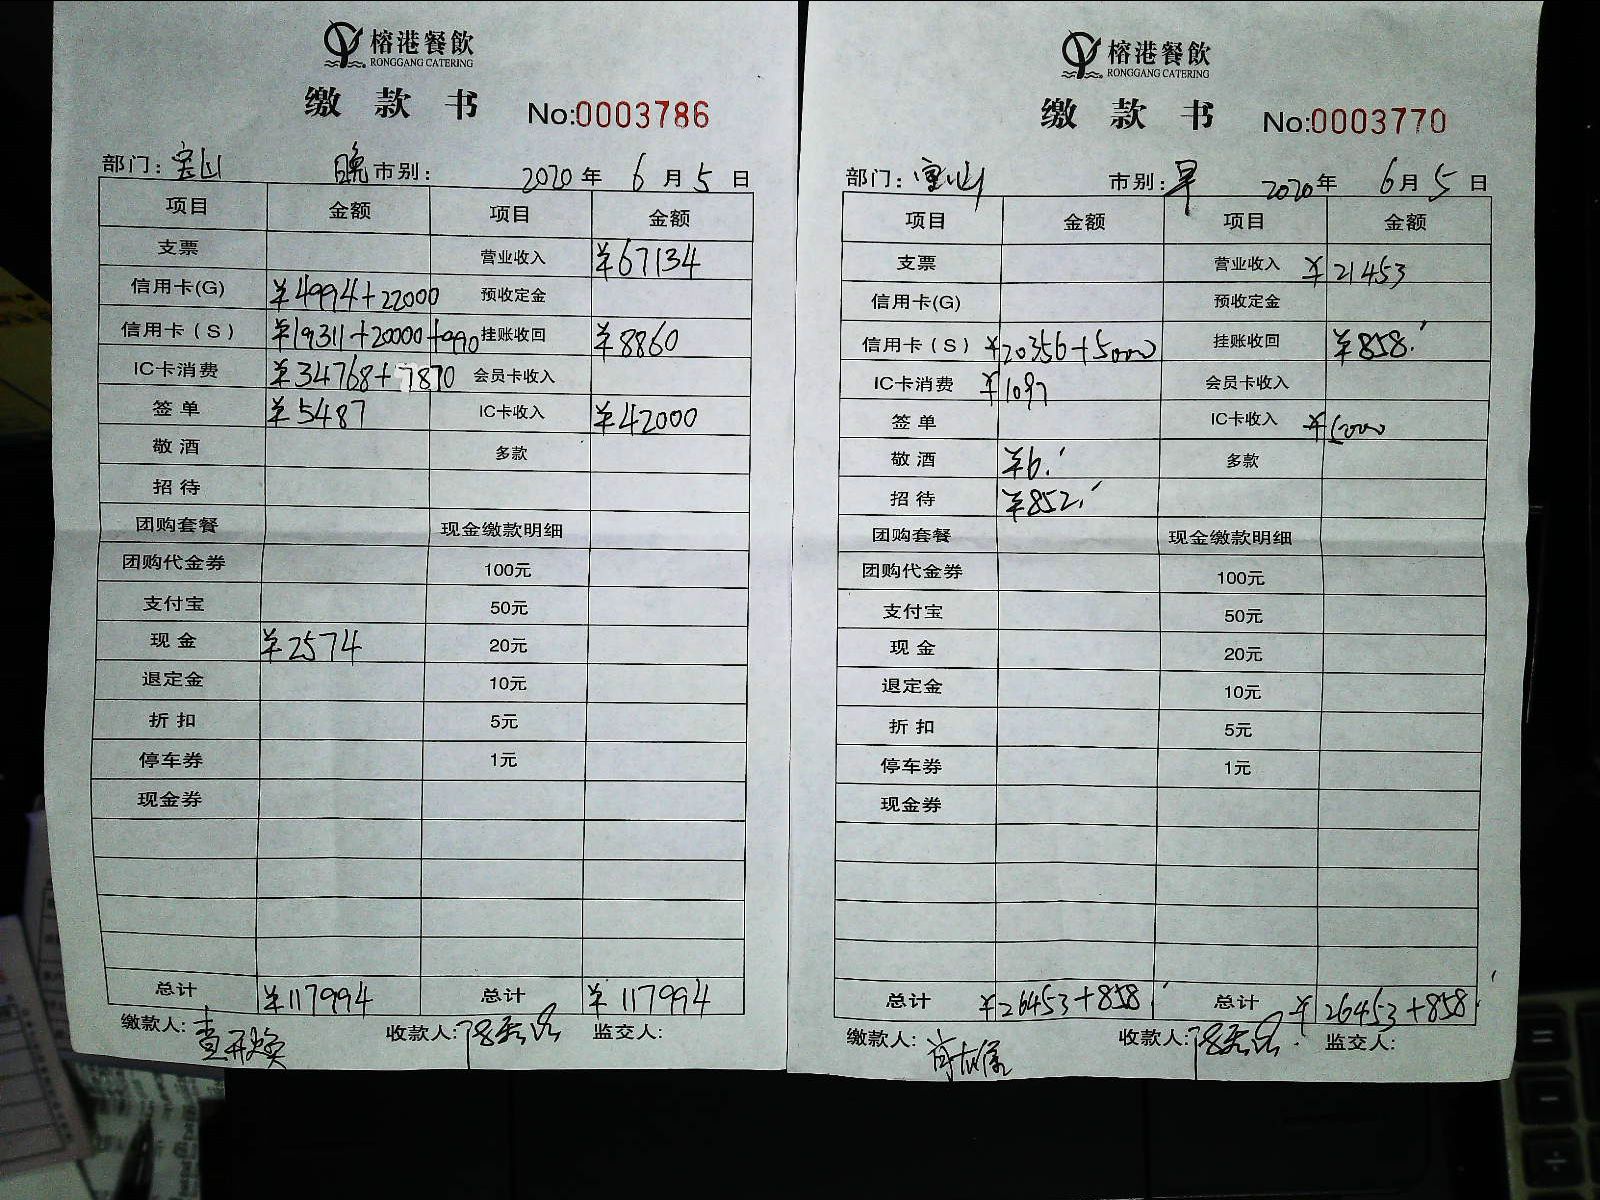 榕港餐飲
RONGGANG CATERING
缴款书 No:0003786
部门: 宝山 晚市别: 2020年 6月5日
项目 金额 项目 金额
支票 营业收入 ¥67134
信用卡(G) ¥4994+22000 预收定金
信用卡（S） ¥19311+20000+990 挂账收回 ¥8860
IC卡消费 ¥34768+7870 会员卡收入
签单 ¥5487 IC卡收入 ¥42000
敬酒 多款
招待
团购套餐 现金缴款明细
团购代金券 100元
支付宝 50元
现金 ¥2574 20元
退定金 10元
折扣 5元
停车券 1元
现金券
总计 ¥117994 总计 ¥117994
缴款人: 收款人: 监交人:
榕港餐飲
RONGGANG CATERING
缴款书 No:0003770
部门: 宝山 市别: 早 2020年 6月5日
项目 金额 项目 金额
支票 营业收入 ¥21453
信用卡(G) 预收定金
信用卡（S） ¥20356+5000 挂账收回 ¥858.
IC卡消费 ¥1097 会员卡收入
签单 IC卡收入 ¥5000
敬酒 ¥6. 多款
招待 ¥852.
团购套餐 现金缴款明细
团购代金券 100元
支付宝 50元
现金 20元
退定金 10元
折扣 5元
停车券 1元
现金券
总计 ¥26453+858 总计 ¥26453+858
缴款人: 收款人: 监交人: